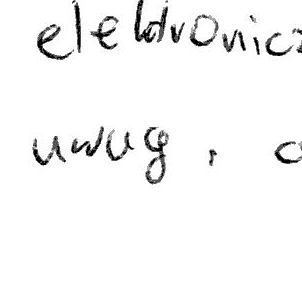 elektronicz
uwug, o